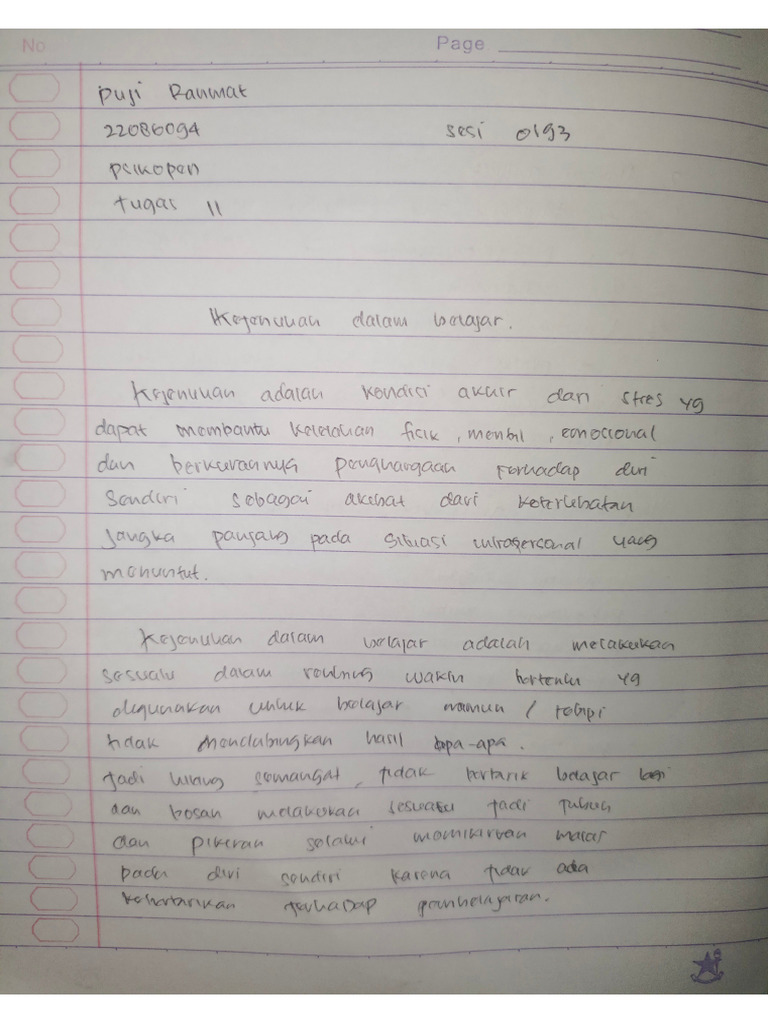 No
Page
Puji Rahmat
22086094 sesi 0193
psikopen
tugas 11
Kejenuhan dalam belajar.
Kejenuhan adalah kondisi akhir dari stres yg
dapat membantu kelelahan fisik, mental, emosional
dan berkurannya penghargaan terhadap diri
sendiri sebagai akibat dari keterlibatan
jangka panjang pada situasi intrapersonal yang
menuntut.
Kejenuhan dalam belajar adalah melakukan
sesuatu dalam waktu tertentu yg
digunakan untuk belajar namun / tetapi
tidak mendatangkan hasil apa-apa.
jadi semangat, tidak tertarik belajar lagi
dan bosan melakukan sesuatu jadi tubuh
dan pikiran selalu memikirkan malas
pada diri sendiri karena tidak ada
ketertarikan terhadap pembelajaran.